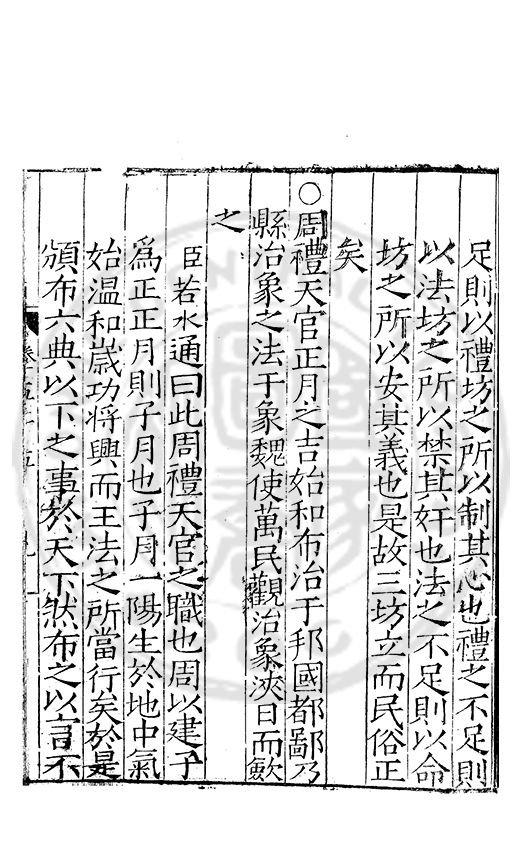 足則以禮坊之所以制其心也禮之不足則
以法坊之所以禁其奸也法之不足則以命
坊之所以安其義也是故三坊立而民俗正
矣
○周禮天官正月之吉始和布治于邦國都鄙乃
縣治象之法于象魏使萬民觀治象浹日而歛
之
臣若水通曰此周禮天官之職也周以建子
爲正正月則子月也子月一陽生於地中氣
始温和歲功将興而王法之所當行矣於是
頒布六典以下之事於天下然布之以言不